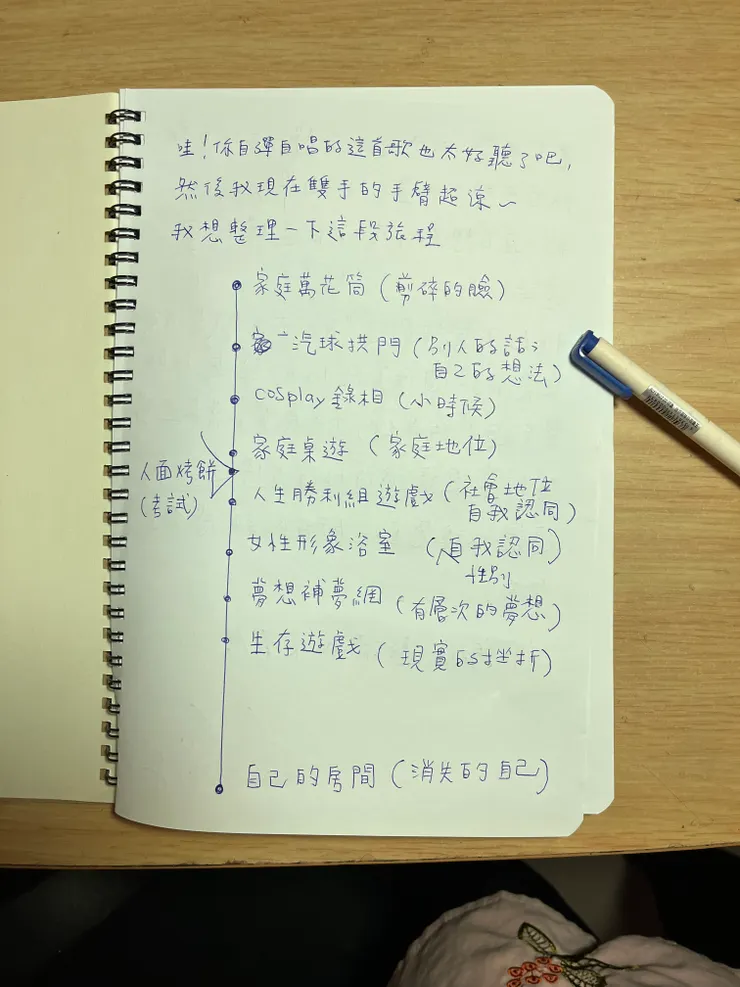 哇！你自彈自唱的這首歌也太好聽了吧，
然後我現在雙手的手臂超涼～
我想整理一下這段旅程
家庭萬花筒（剪碎的臉）
汽球拱門（別人的話；
自己的想法）
cosplay錄相（小時候）
家庭桌遊（家庭地位）
人面烤餅
（考試）
人生勝利組遊戲（社會地位
自我認同）
女性形象浴室（自我認同）
性別
夢想補夢網（有層次的夢想）
生存遊戲（現實的挫折）
自己的房間（消失的自己）